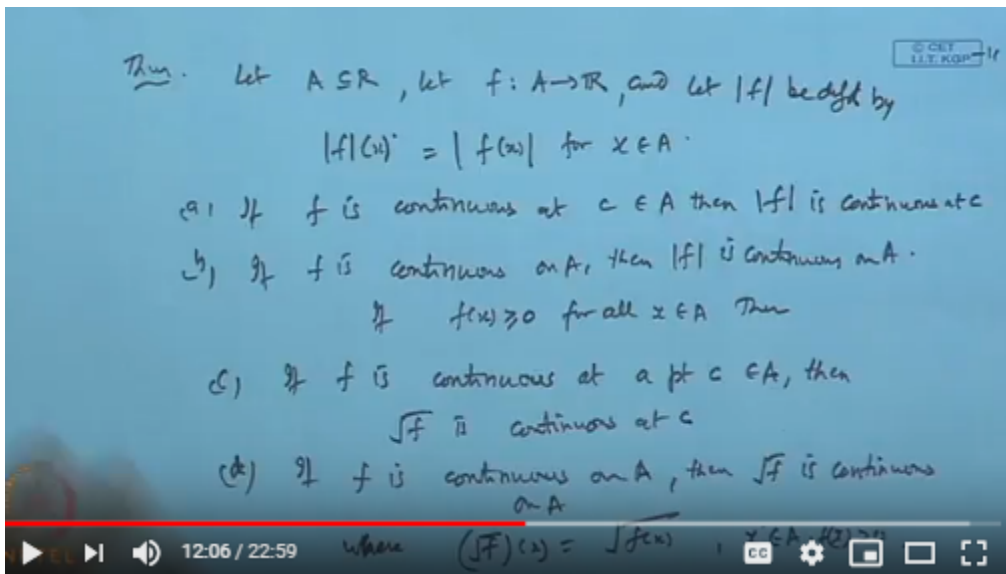 © CET
I.I.T. KGP
Thm. Let A ⊆ R, let f: A→R, and let |f| be defd by
|f|(x) = |f(x)| for x ∈ A.
(a) If f is continuous at c ∈ A then |f| is continuous at c
(b) If f is continuous on A, then |f| is continuous on A.
If f(x) ≥ 0 for all x ∈ A Then
(c) If f is continuous at a pt c ∈ A, then
√f is continuous at c
(d) If f is continuous on A, then √f is continuous
on A
where (√f)(x) = √f(x), x ∈ A,
12:06 / 22:59
CC